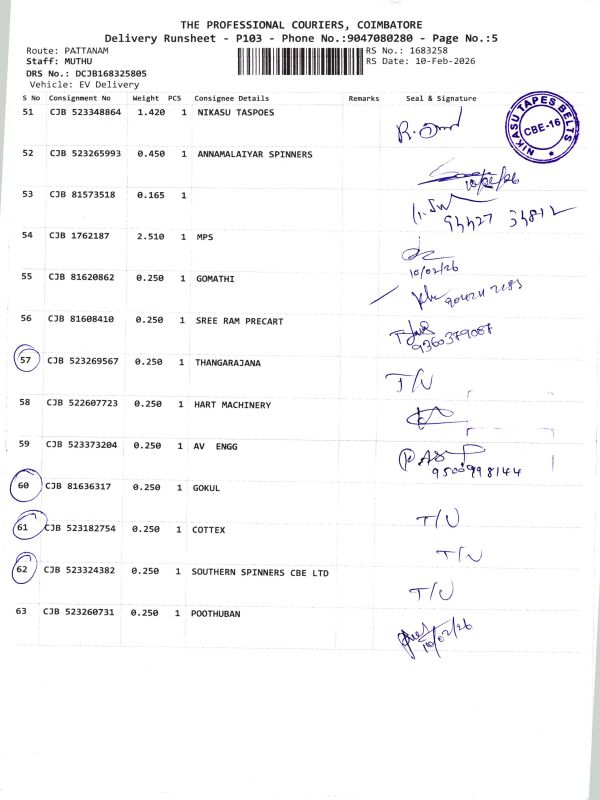 THE PROFESSIONAL COURIERS, COIMBATORE
Delivery Runsheet - P103 - Phone No.:9047080280 - Page No.:5
Route: PATTANAM RS No.: 1683258
Staff: MUTHU RS Date: 10-Feb-2026
DRS No.: DCJB168325805
Vehicle: EV Delivery
S No Consignment No Weight PCS Consignee Details Remarks Seal & Signature
51 CJB 523348864 1.420 1 NIKASU TASPOES
NIKASU TAPES BELTS
CBE-16
52 CJB 523265993 0.450 1 ANNAMALAIYAR SPINNERS
10/02/26
53 CJB 81573518 0.165 1
54 CJB 1762187 2.510 1 MPS
10/02/26
55 CJB 81620862 0.250 1 GOMATHI
56 CJB 81608410 0.250 1 SREE RAM PRECART
9360379087
57 CJB 523269567 0.250 1 THANGARAJANA
T/U
58 CJB 522607723 0.250 1 HART MACHINERY
59 CJB 523373204 0.250 1 AV ENGG
9500998144
60 CJB 81636317 0.250 1 GOKUL
T/U
61 CJB 523182754 0.250 1 COTTEX
T/U
62 CJB 523324382 0.250 1 SOUTHERN SPINNERS CBE LTD
T/U
63 CJB 523260731 0.250 1 POOTHUBAN
10/02/26